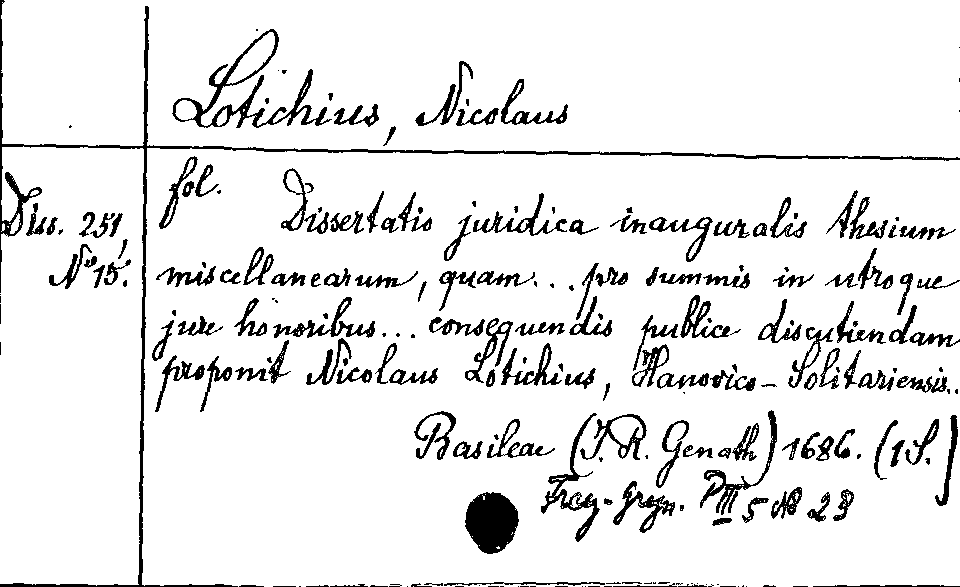 Lotichius, Nicolaus
Diss. 251,
No 15.
fol. Dissertatio juridica inauguralis thesium
miscellanearum, quam... pro summis in utroque
jure honoribus... consequendis publice discutiendam
proponit Nicolaus Lotichius, Hanovico-Solitariensis..
Basileae (J. R. Genath) 1686. (1 S.)
Frey-Gryn. P III 5 No 23